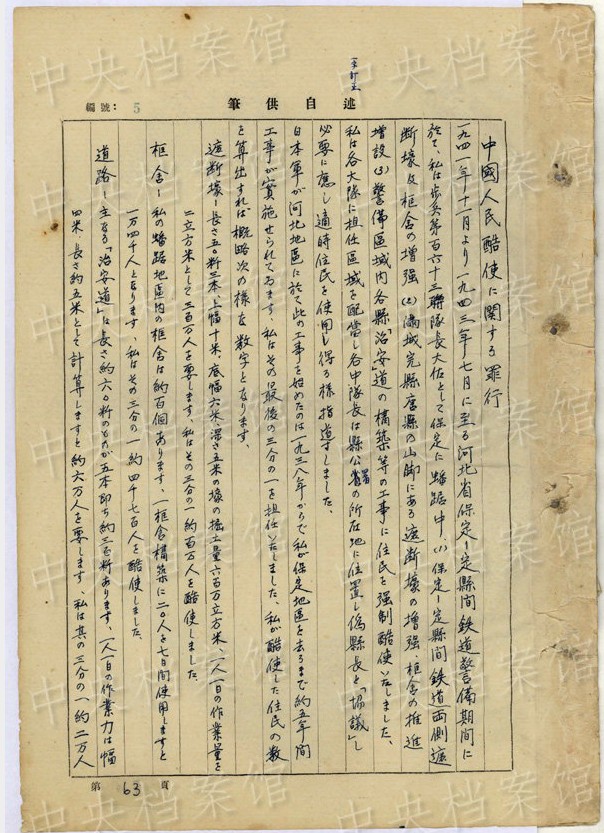 編號：5
筆供自述
一字訂正
中國人民酷使に関する罪行
一九四一年十一月より一九四三年七月に至る河北省保定—定縣間鉄道警備期間に
於て、私は歩兵第百六十三聯隊長大佐として保定に蟠踞中、(1)保定—定縣間鉄道両側遮
断壕及柜舎の増強(2)満城完縣唐縣の山脚にある遮断壕の増強柜舎の推進
増設(3)警備區域内各縣「治安」道の構築等の工事に住民を強制酷使いたしました、
私は各大隊に担任區域を配當し各中隊長は縣公署の所在地に位置し偽縣長と「協議」し
必要に應し適時住民を使用し得る様指導すしました、
日本軍が河北地區に於て此の工事を始めたのは一九三八年からで私が保定地區を去るまで約五年間
工事が實施せられてゐます、私はその最後の三分の一を担任いたしました、私が酷使した住民の数
を算出すれば概略次の様な数字となります、
遮断壕—長さ五〇粁三本、上幅十米、底幅六米、深さ五米の壕の掘土量六百万立方米、一人一日の作業量を
二立方米として三百万人を要します、私はその三分の一約百万人を酷使しました、
柜舎—私の蟠踞地區内の柜舎は約百個あります、一柜舎構築に二〇人を七日間使用しますと
一万四千人となります、私はその三分の一約四千七百人を酷使しました、
道路—主なる「治安道」は長さ約六〇粁のものが五本即ち約三百粁あります、一人一日の作業力は幅
四米、長さ約五米として計算しますと約六万人を要します、私は其の三分の一約二万人
第63頁
中央档案馆